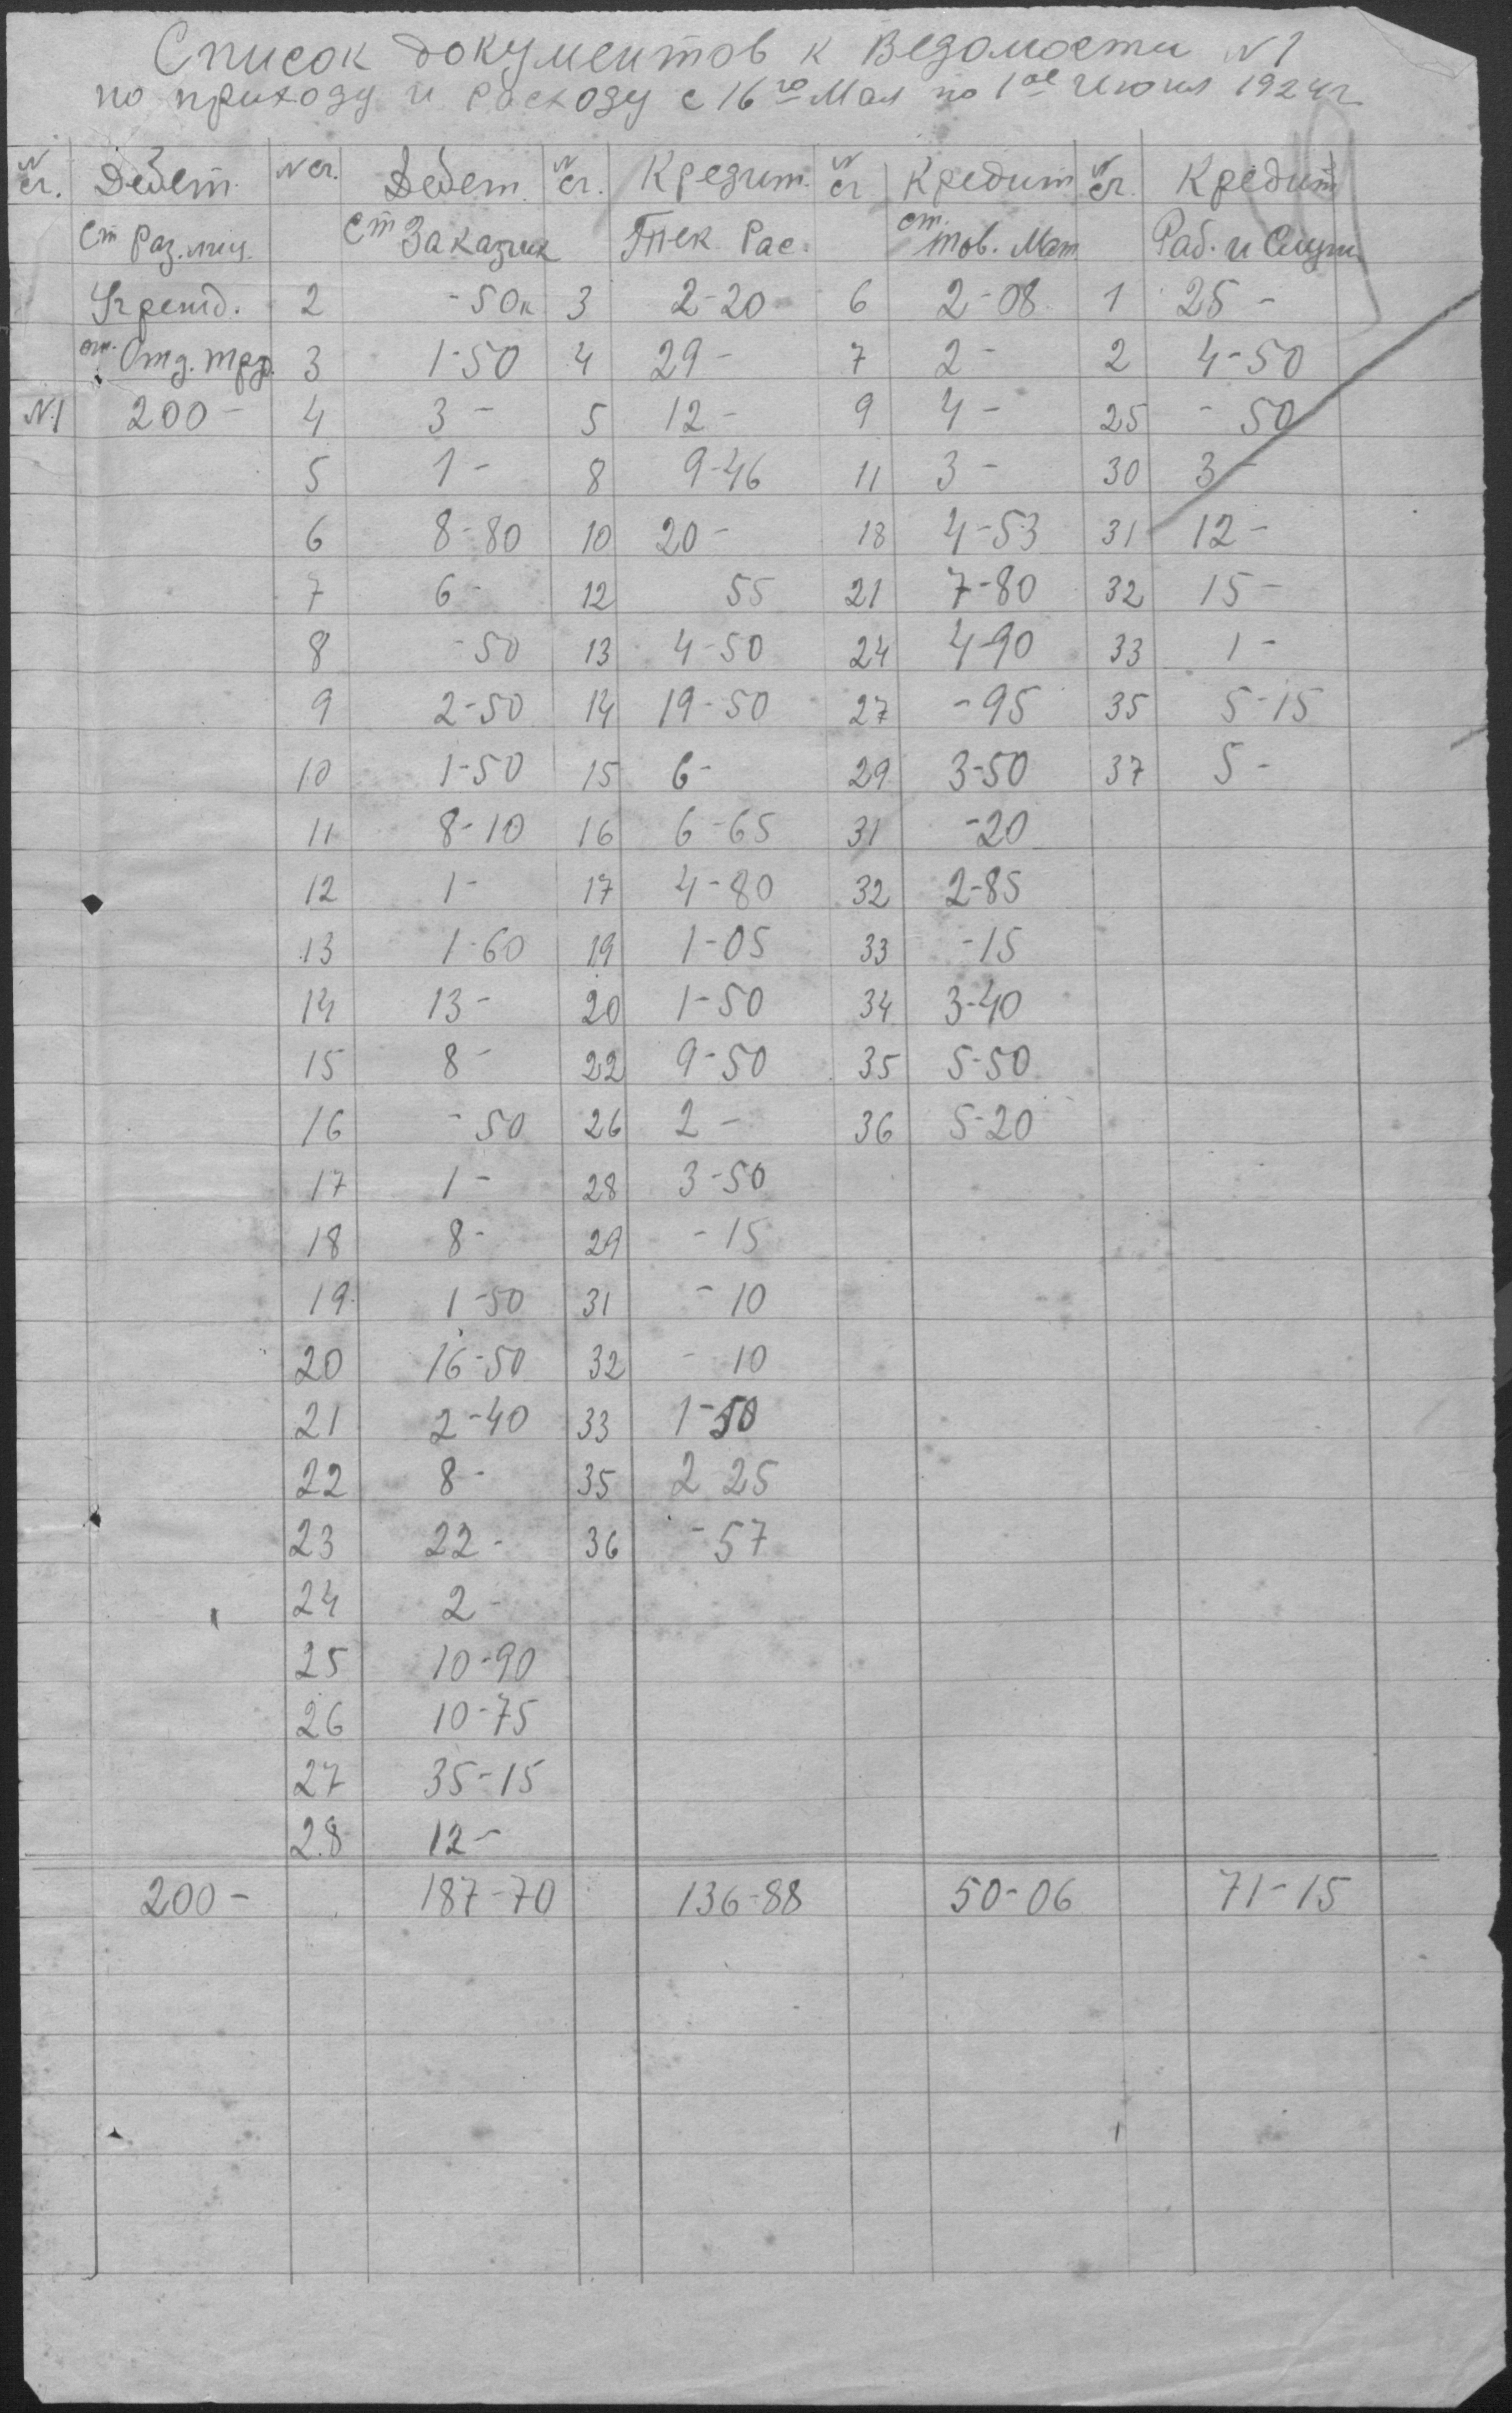 Список документов к Ведомости №1
по приходу и расходу с 16го Мая по 1ое Июня 1924 г
№ сч. Дебет № сч. Дебет № сч. Кредит № сч Кредит № сч. Кредит
Ст Раз. лиц. Ст Заказчик Тек Рас. ст. тов. Мат Раб. и Служ
Учрежд. 2 -50к 3 2-20 6 2-08 1 25-
от. Отд. 3 1-50 4 29- 7 2- 2 4-50
№1 200- 4 3- 5 12- 9 4- 25 -50
5 1- 8 9-46 11 3- 30 3-
6 8-80 10 20- 18 4-53 31 12-
7 6- 12 55 21 7-80 32 15-
8 -50 13 4-50 24 4-90 33 1-
9 2-50 14 19-50 27 -95 35 5-15
10 1-50 15 6- 29 3-50 37 5-
11 8-10 16 6-65 31 -20
12 1- 17 4-80 32 2-85
13 1-60 19 1-05 33 -15
14 13- 20 1-50 34 3-40
15 8- 22 9-50 35 5-50
16 -50 26 2- 36 5-20
17 1- 28 3-50
18 8- 29 -15
19 1-50 31 -10
20 16-50 32 -10
21 2-40 33 1-50
22 8- 35 2 25
23 22- 36 -57
24 2-
25 10-90
26 10-75
27 35-15
28 12-
200- 187-70 136-88 50-06 71-15